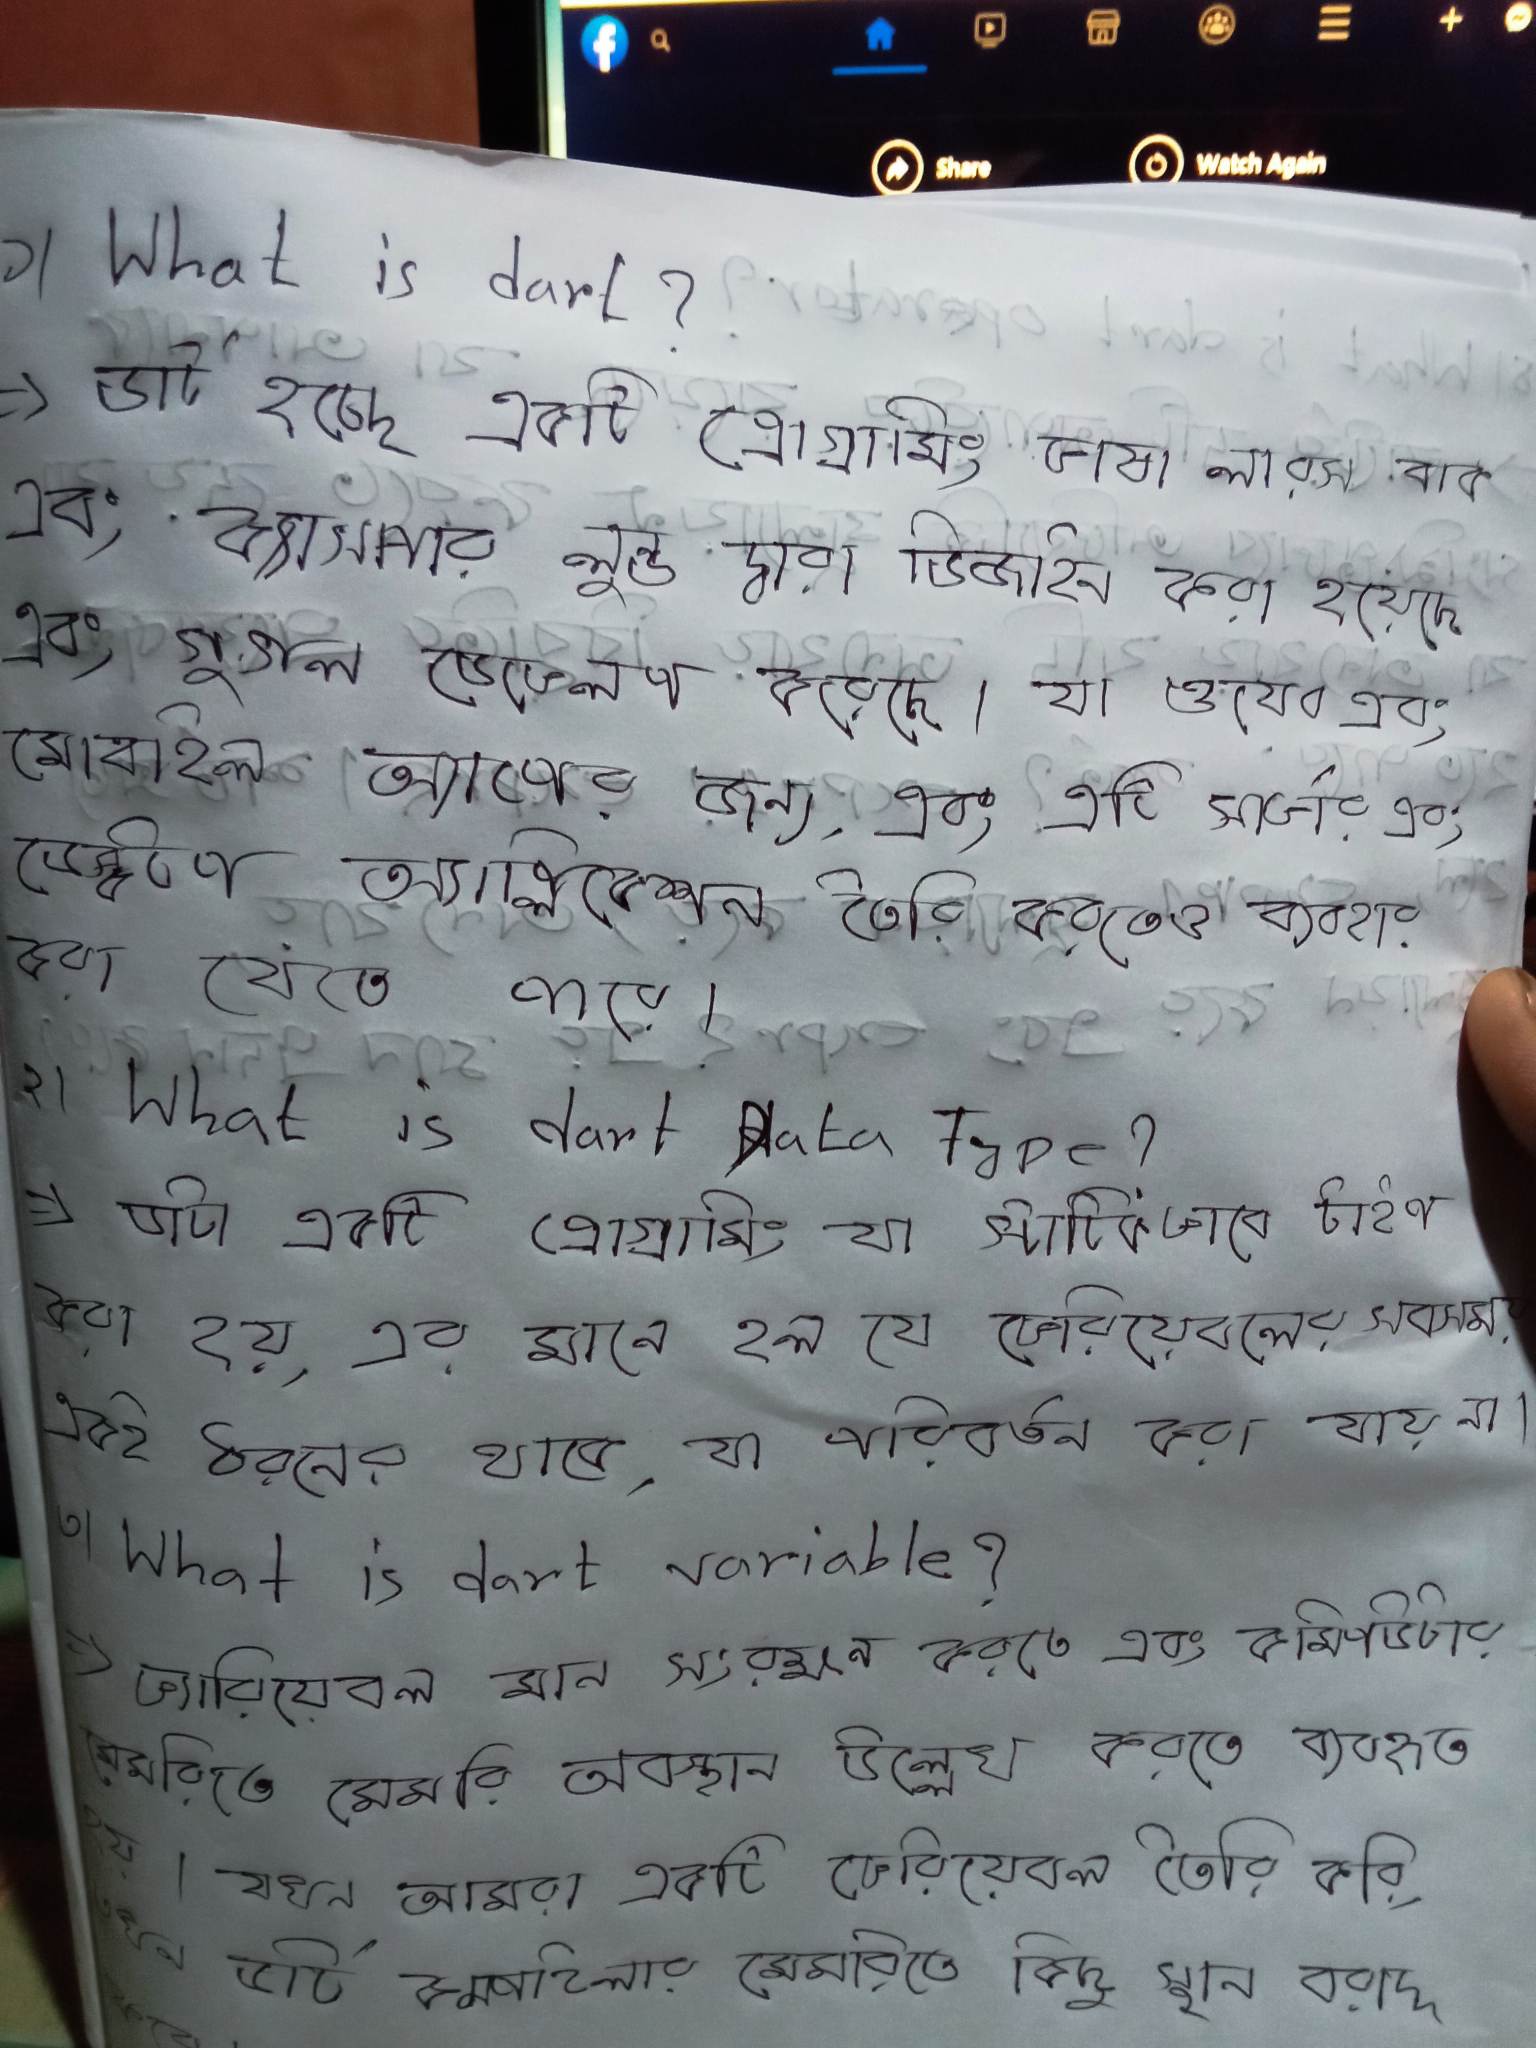 Share Watch Again
১। What is dart?
=> ডার্ট হচ্ছে একটি প্রোগ্রামিং ভাষা লারস বাক
এবং ক্যাসপার লুন্ড দ্বারা ডিজাইন করা হয়েছে
এবং গুগল ডেভেলপ করেছে। যা ওয়েব এবং
মোবাইল অ্যাপের জন্য, এবং এটি সার্ভার এবং
ডেস্কটপ অ্যাপ্লিকেশন তৈরি করতেও ব্যবহার
করা যেতে পারে।
২। What is dart Data Type?
=> ডাট একটি প্রোগ্রামিং যা স্ট্যাটিকভাবে টাইপ
করা হয়, এর মানে হল যে ভেরিয়েবলের সবসময়
একই ধরনের থাকে, যা পরিবর্তন করা যায় না।
৩। What is dart variable?
=> ভ্যারিয়েবল মান সংরক্ষন করতে এবং কমিপউটার
মেমরিতে মেমরি অবস্থান উল্লেখ করতে ব্যবহৃত
হয়। যখন আমরা একটি ভেরিয়েবল তৈরি করি,
তখন ডার্ট কমপাইলার মেমরিতে কিছু স্থান বরাদ্দ